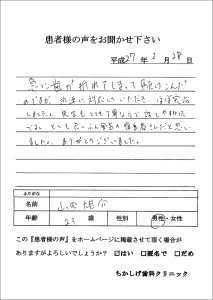 患者様の声をお聞かせ下さい
平成27年2月28日
急に歯が折れてしまって駆けこんだ
のですが、丁寧に対応していただき、ほぼ完治
しました。先生もとても
で、とても
ました。ありがとうございました。
ふりがな
名前 山田
年齢 23 歳 性別 男性・女性
この『患者様の声』をホームページに掲載させて頂く場合が
ありますがよろしいでしょうか？ ☑はい □匿名で □だめ
ちかしげ歯科クリニック